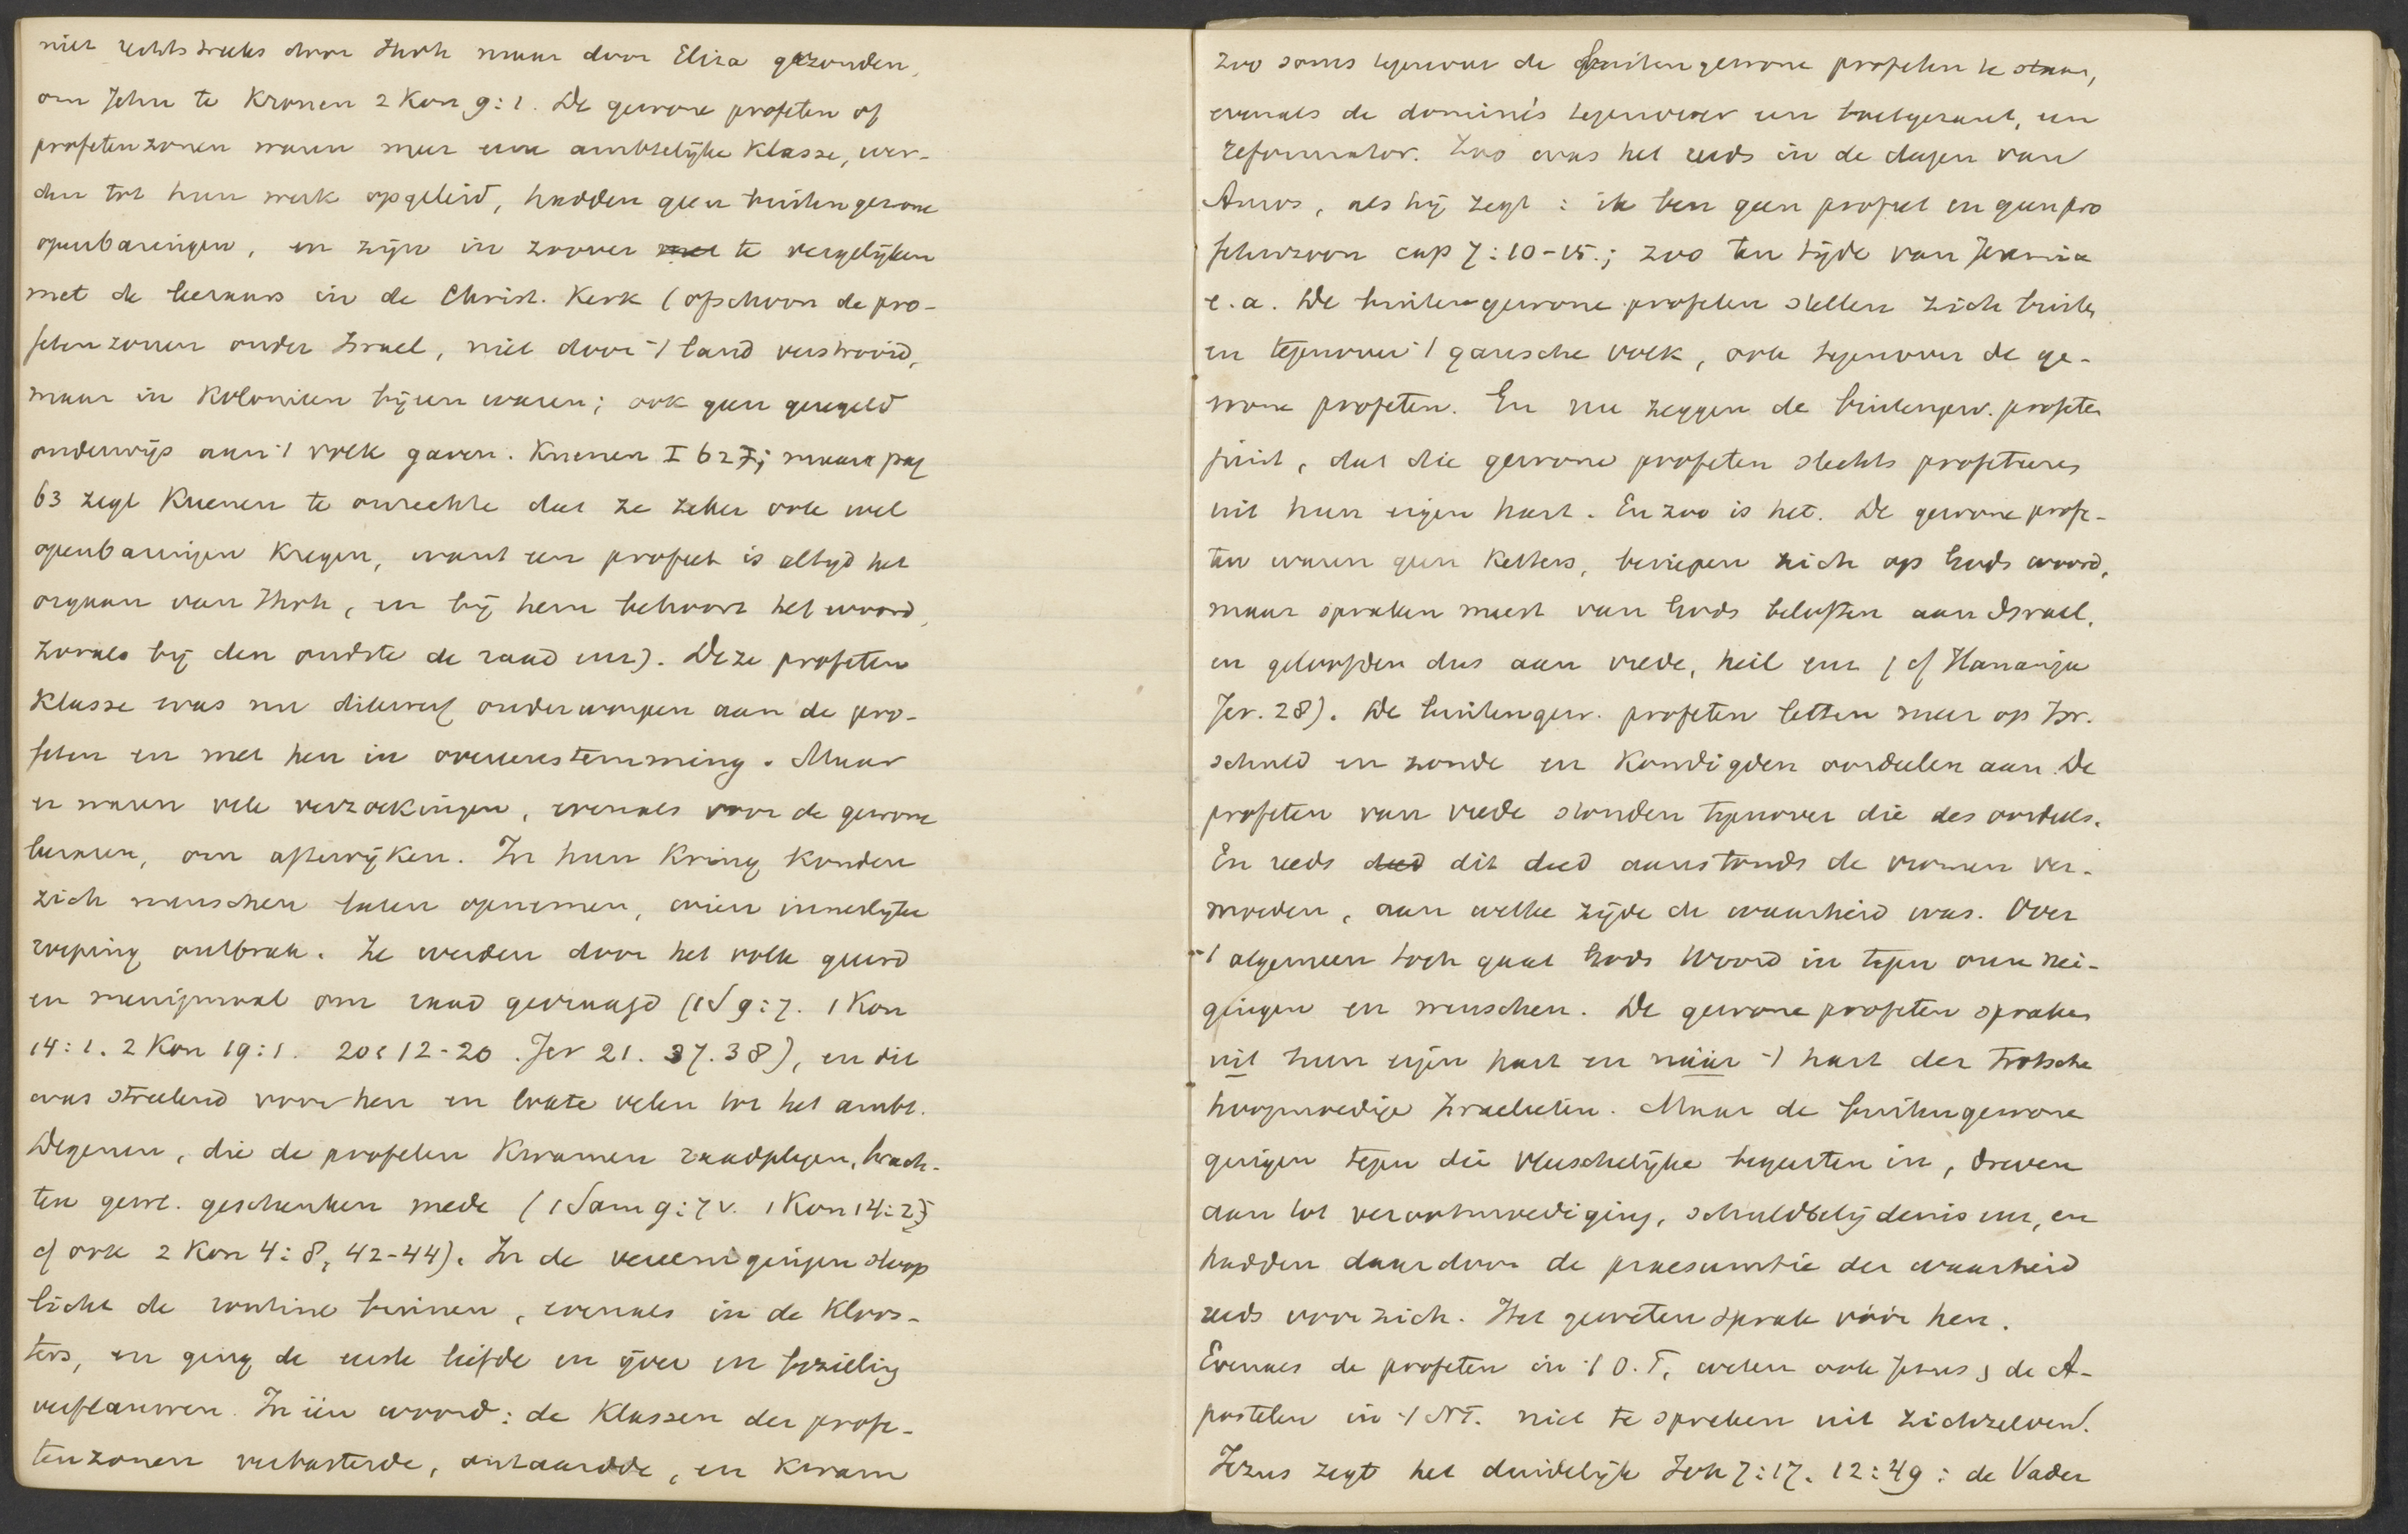 niet rechtstreeks door Jhvh maar door Elisa gezonden,
om Jehu te kronen 2 Kon 9:1. De gewone profeten of
profetenzonen waren meer eene ambtelijke klasse, wer-
den tot hun werk opgeleid, hadden geen buitengewone
openbaringen, en zijn in zoover met te vergelijken
met de leeraars in de Christ. Kerk (ofschoon de pro-
fetenzonen onder Israel, niet door 't land verstrooid,
maar in Kolonien bijeen waren; ook geen geregeld
onderwijs aan 't volk gaven. Kuenen I 62 ; maar pag
63 zegt Kuenen te onrechte dat ze zeker ook wel
openbaringen kregen, want een profeet is altijd het
orgaan van Jhvh, en bij hem behoort het woord,
zooals bij den oudste de raad enz). Deze profeten
klasse was nu dikwerf onderworpen aan de pro-
feten en met hen in overeenstemming. Maar
er waren vele verzoekingen, evenals voor de gewone
leeraren, om aftewijken. In hun kring konden
zich menschen laten opnemen, wien innerlijke
roeping ontbrak. Ze werden door het volk geeerd
en menigmaal om raad gevraagd (1 S 9:7. 1 Kon
14:1. 2 Kon 19:1. 20:12-20. Jer 21. 37.38), en dit
was streelend voor hen en lokte velen tot het ambt.
Degenen, die de profeten kwamen raadplegen, brach-
ten gew. geschenken mede (1 Sam 9:7v. 1 Kon 14:2,3
cf ook 2 Kon 4:8, 42-44). In de vereenigingen sloop
licht de routine binnen, evenals in de Kloos-
ters, en ging de eerste liefde en ijver en bezieling
verflauwen. In één woord: de klassen der profe-
tenzonen verbasterde, ontaardde, en kwam
zoo soms tegenover de buitengewone profeten te staan,
evenals de dominés tegenover een boetgezant, een
reformator. Zoo was het reeds in de dagen van
Amos, als hij zegt: ik ben geen profeet en geen pro
fetenzoon cap 7:10-15.; zoo ten tijde van Jeremia
e.a. De buitengewone profeten stellen zich buiten
en tegenover 't gansche volk, ook tegenover de ge-
wone profeten. En nu zeggen de buitengew. profeten
juist, dat die gewone profeten slechts profeteeren
uit hun eigen hart. En zoo is het. De gewone profe-
ten waren geen Ketters, beriepen zich op Gods woord,
maar spraken meest van Gods beloften aan Israel,
en geloofden dus aan vrede, heil enz (cf Hananja
Jer. 28). De buitengew. profeten letten meer op Isr.
schuld en zonde en kondigden oordeelen aan. De
profeten van vrede stonden tegenover die des oordeels.
En reeds deed dit deed aanstonds de vromen ver-
moeden, aan welke zijde de waarheid was. Over
't algemeen toch gaat Gods Woord in tegen onze nei-
gingen en wenschen. De gewone profeten spraken
uit hun eigen hart en náár 't hart der trotsche
hoogmoedige Israelieten. Maar de buitengewone
gingen tegen die vleeschelijke begeerten in, dreven
aan tot verootmoediging, schuldbelijdenis enz, en
hadden daardoor de praesumtie der waarheid
reeds voor zich. Het geweten sprak vóór hen.
Evenals de profeten in 't O.T, weten ook Jezus & de A-
postelen in 't NT. niet te spreken uit zichzelven.
Jezus zegt het duidelijk Joh 7:17. 12:49: de Vader